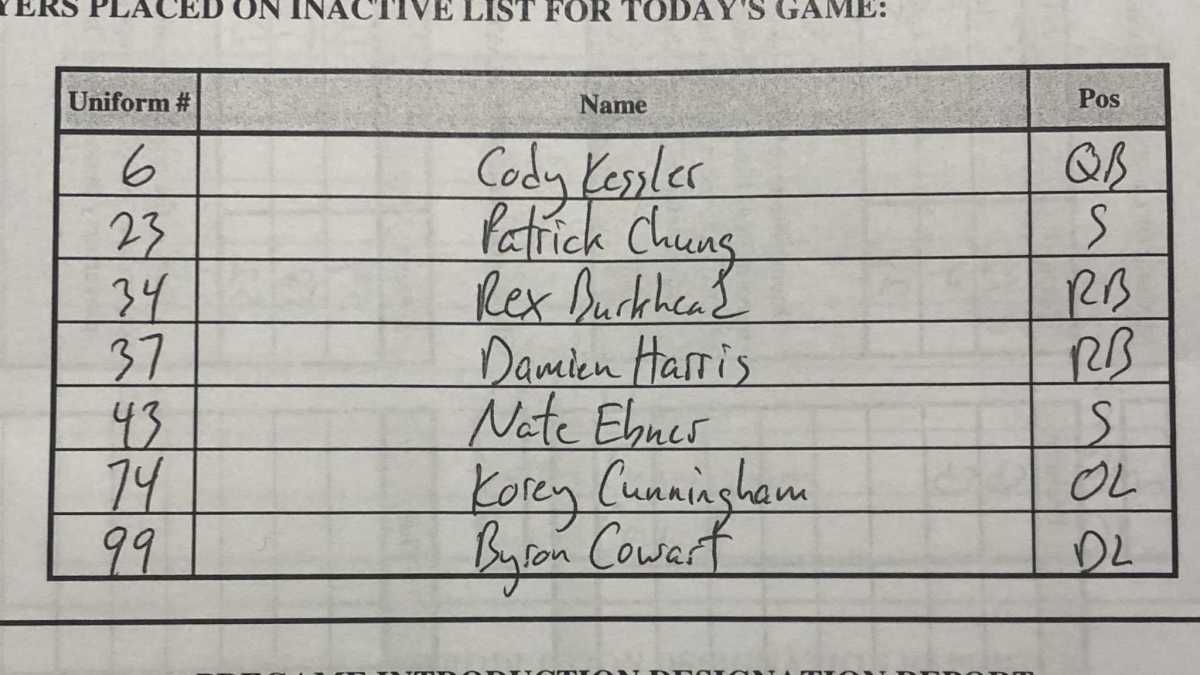 YERS PLACED ON INACTIVE LIST FOR TODAY'S GAME:
Uniform # Name Pos
6 Cody Kessler QB
23 Patrick Chung S
34 Rex Burkhead RB
37 Damien Harris RB
43 Nate Ebner S
74 Korey Cunningham OL
99 Byron Cowart DL
PREGAME INTRODUCTION DESIGNATION REPORT